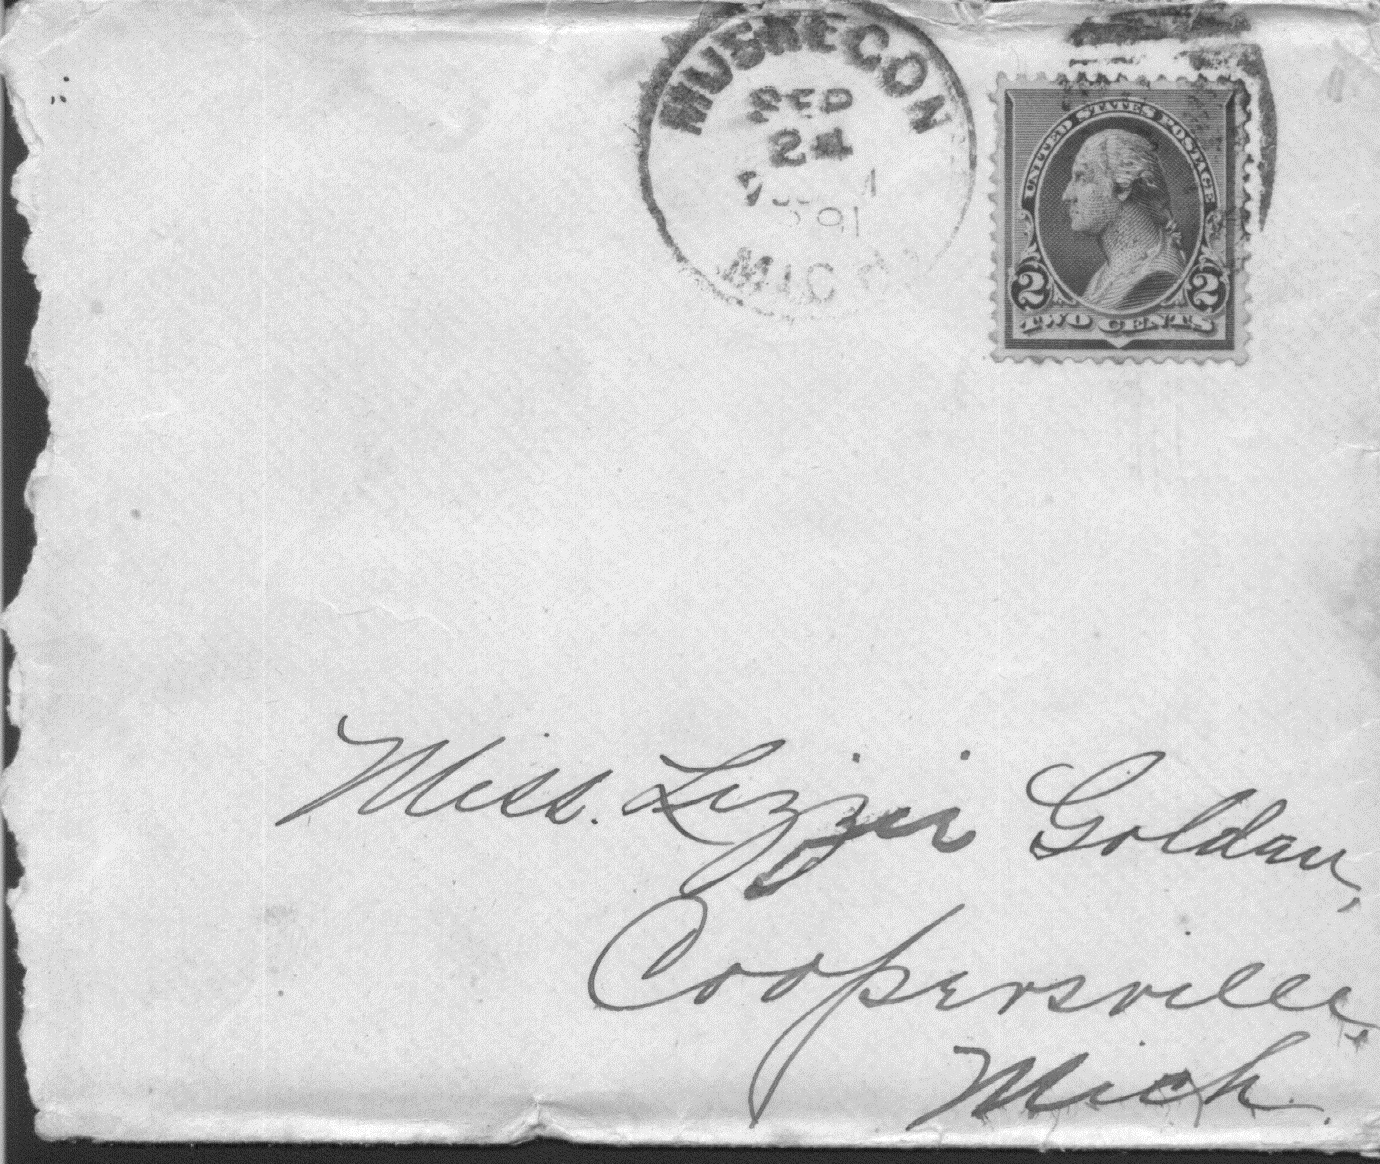 MUSKEGON
SEP
24
91
MICH
UNITED STATES POSTAGE
2 2
TWO CENTS
Miss. Lizzie Golden,
Coopersville,
Mich.